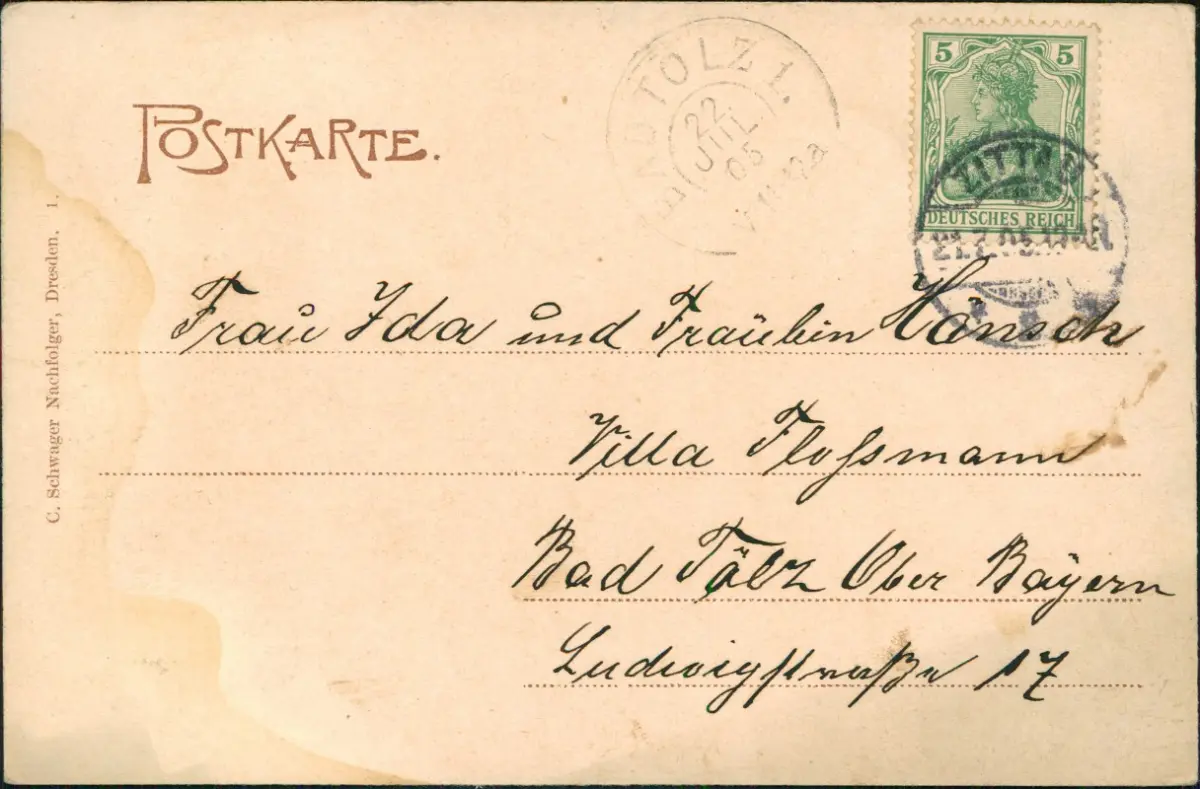 POSTKARTE.
BAD TÖLZ 1.
22
JUL.
05
5 5
DEUTSCHES REICH
ZITTAU
Frau Ida und Fräulein Hänsch
Villa Floſsmann
Bad Tölz Ober Bayern
Ludwigſtraße 17
C. Schwager Nachfolger, Dresden. 1.